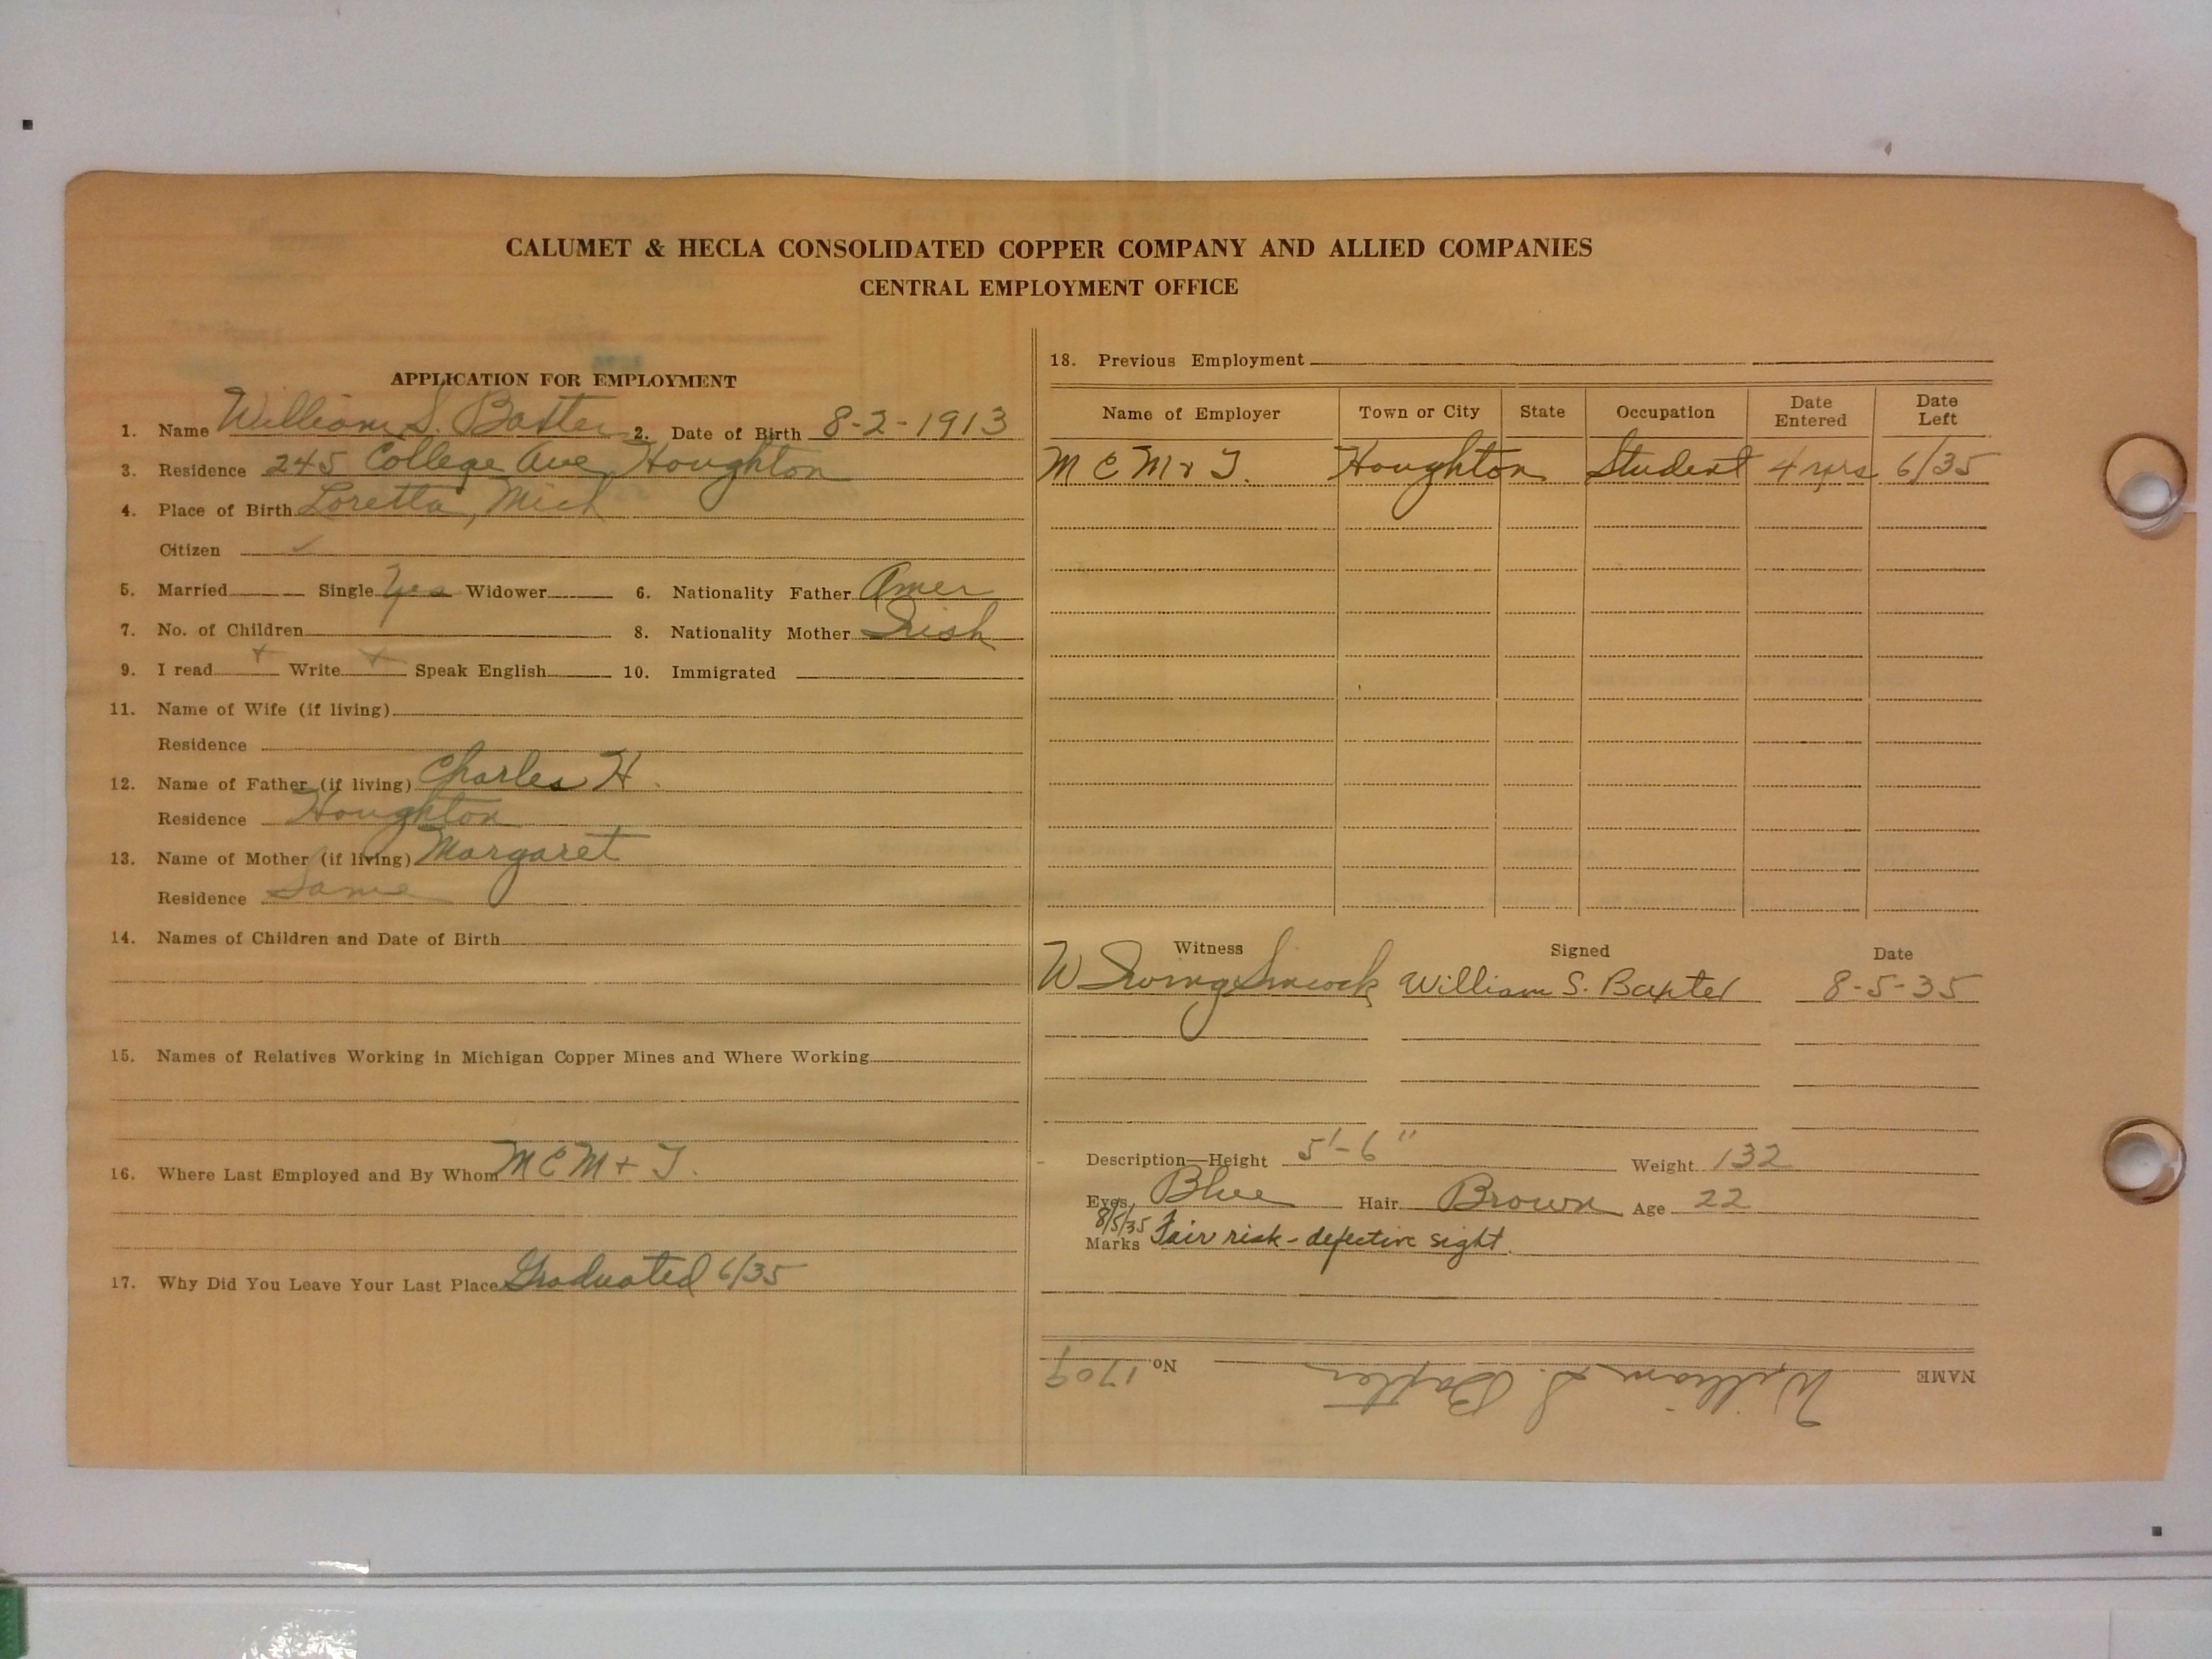 CALUMET & HECLA CONSOLIDATED COPPER COMPANY AND ALLIED COMPANIES
CENTRAL EMPLOYMENT OFFICE
APPLICATION FOR EMPLOYMENT
1. Name William S. Baxter 2. Date of Birth 8-2-1913
3. Residence 245 College Ave Houghton
4. Place of Birth Loretta, Mich
Citizen ✓
5. Married Single Yes Widower 6. Nationality Father Amer
7. No. of Children 8. Nationality Mother Irish
9. I read + Write + Speak English 10. Immigrated
11. Name of Wife (if living)
Residence
12. Name of Father (if living) Charles H.
Residence Houghton
13. Name of Mother (if living) Margaret
Residence Same
14. Names of Children and Date of Birth
15. Names of Relatives Working in Michigan Copper Mines and Where Working
16. Where Last Employed and By Whom M C M + T.
17. Why Did You Leave Your Last Place Graduated 6/35
18. Previous Employment
Name of Employer Town or City State Occupation Date Entered Date Left
M C M & T. Houghton Student 4 yrs 6/35
Witness Signed Date
W Irving Simcock William S. Baxter 8-5-35
Description—Height 5'-6" Weight 132
Eyes Blue Hair Brown Age 22
8/5/35
Marks Fair risk - defective sight.
NAME William S. Baxter No. 1709